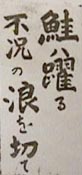 鮭ハ躍る
不況の浪を切て